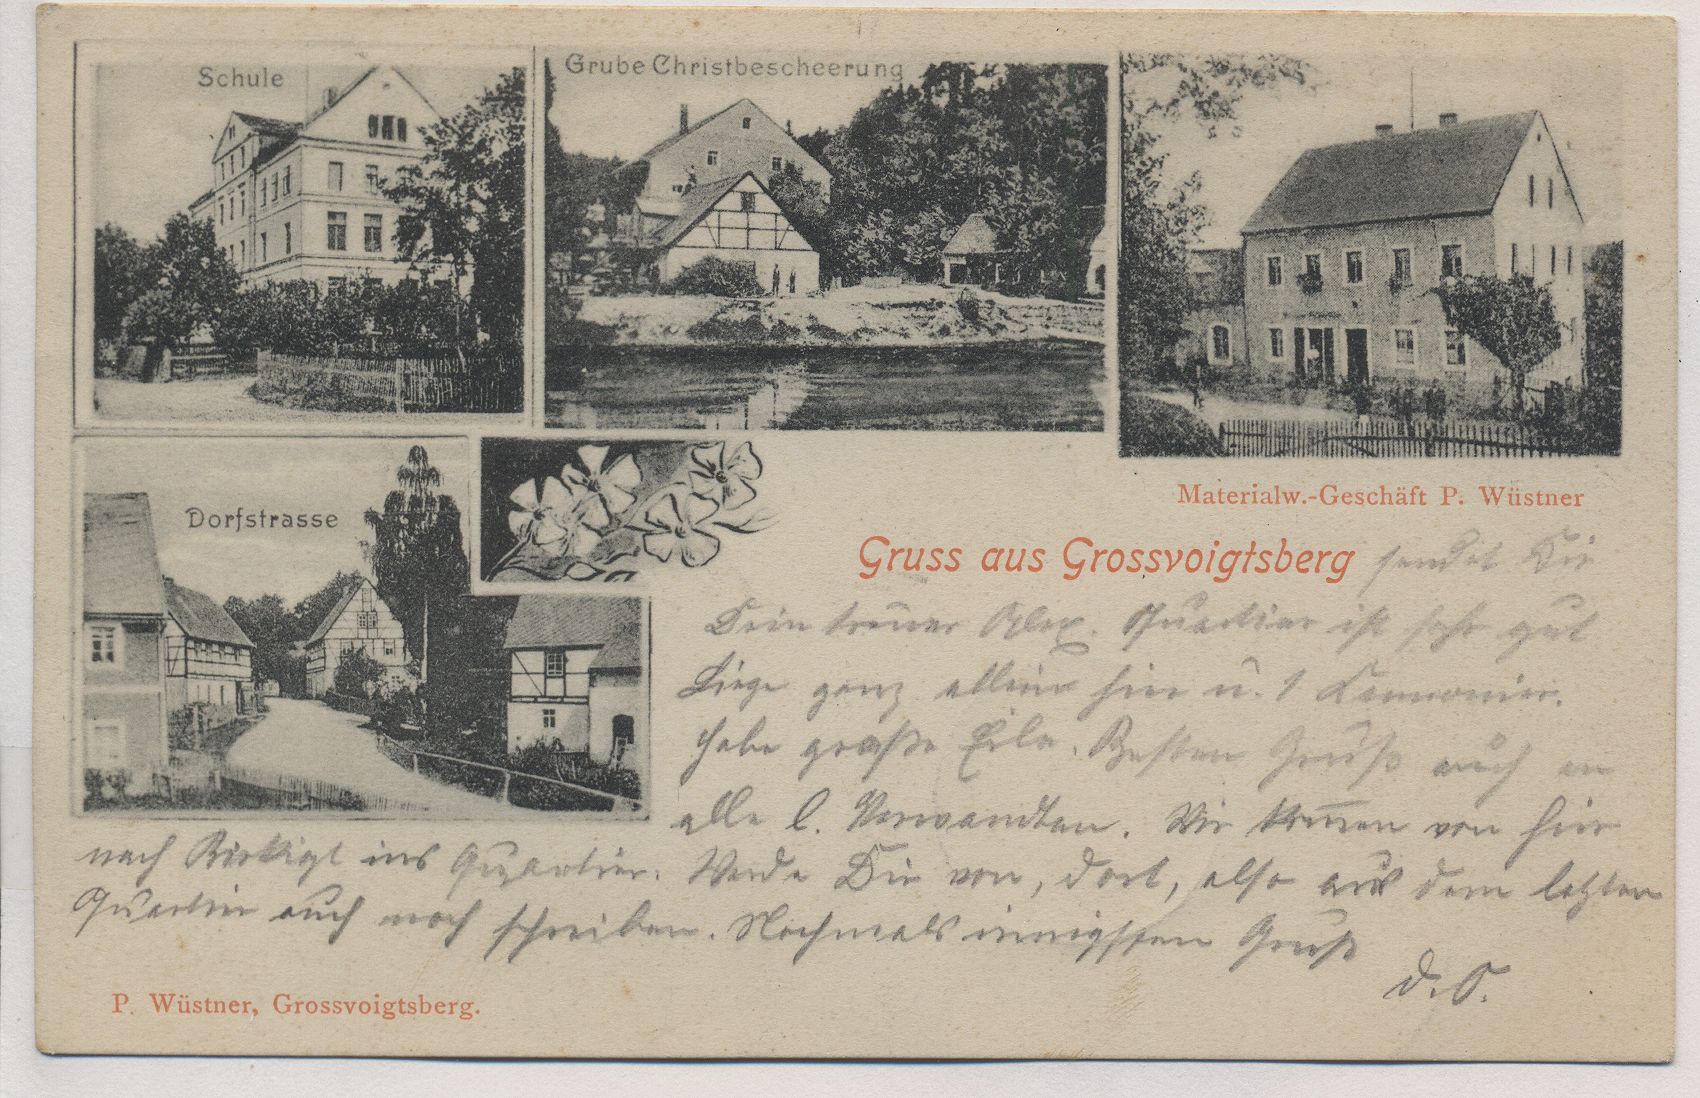 Schule
Grube Christbescheerung
Materialw.-Geschäft P. Wüstner
Dorfstrasse
Gruss aus Grossvoigtsberg sendet Dir
Dein treuer Alex. Quartier ist sehr gut
Liege ganz allein hier u. 1
habe große Eile. Besten Gruß auch an
alle l. Verwandten. Wir kommen von hier
nach ins Quartier. Werde Dir von, dort, also aus dem letzten
Quartier auch noch schreiben. Nochmals innigsten Gruß
d. O.
P. Wüstner, Grossvoigtsberg.